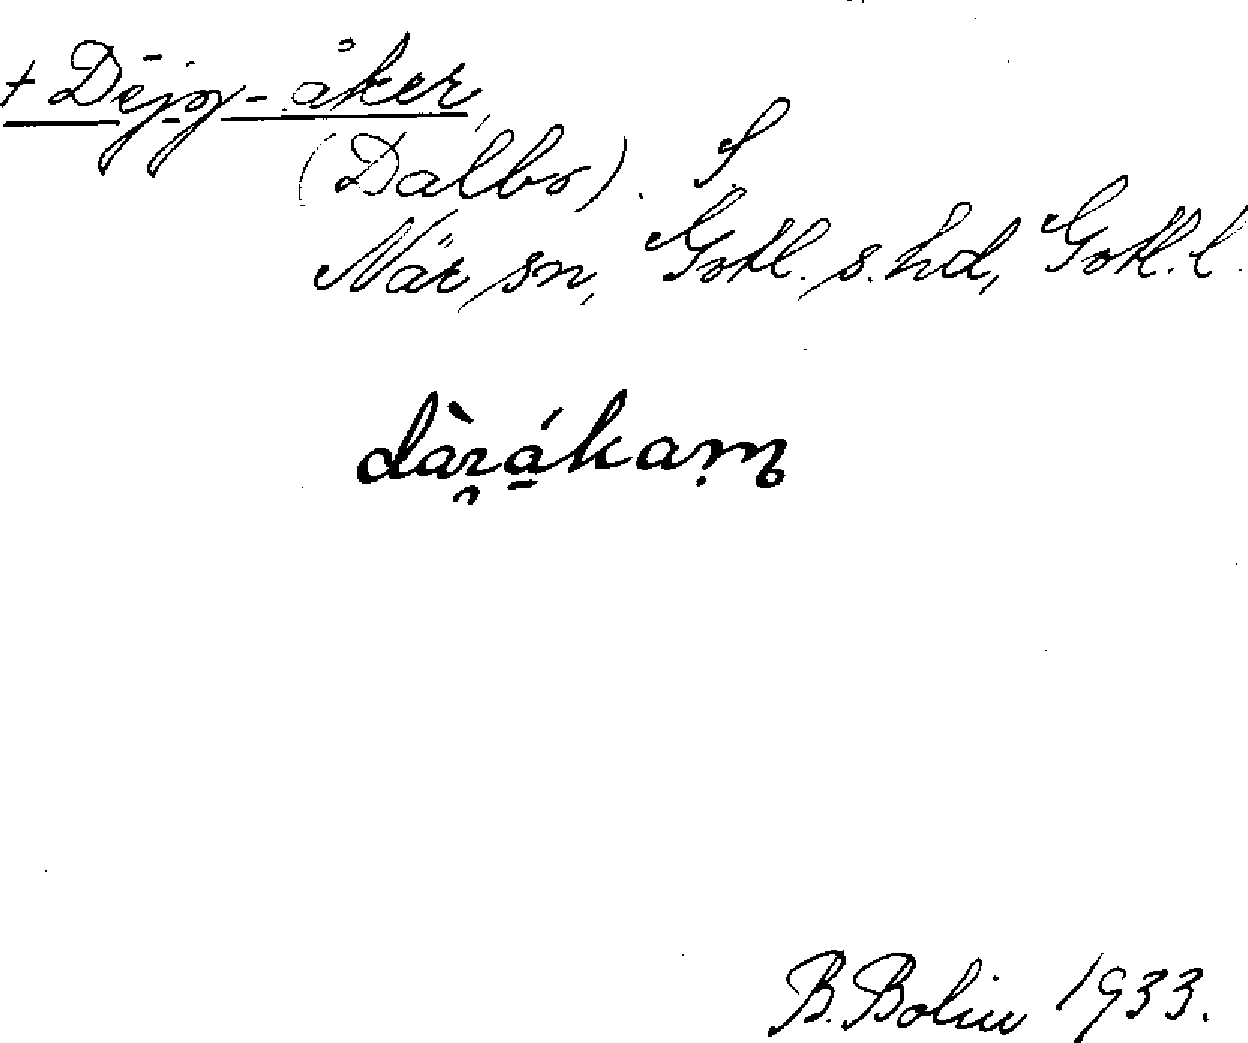 + Dējg-åker,
(Dalbo). S
När sn, Gotl. s. hd, Gotl. l.
B. Bolin 1933.